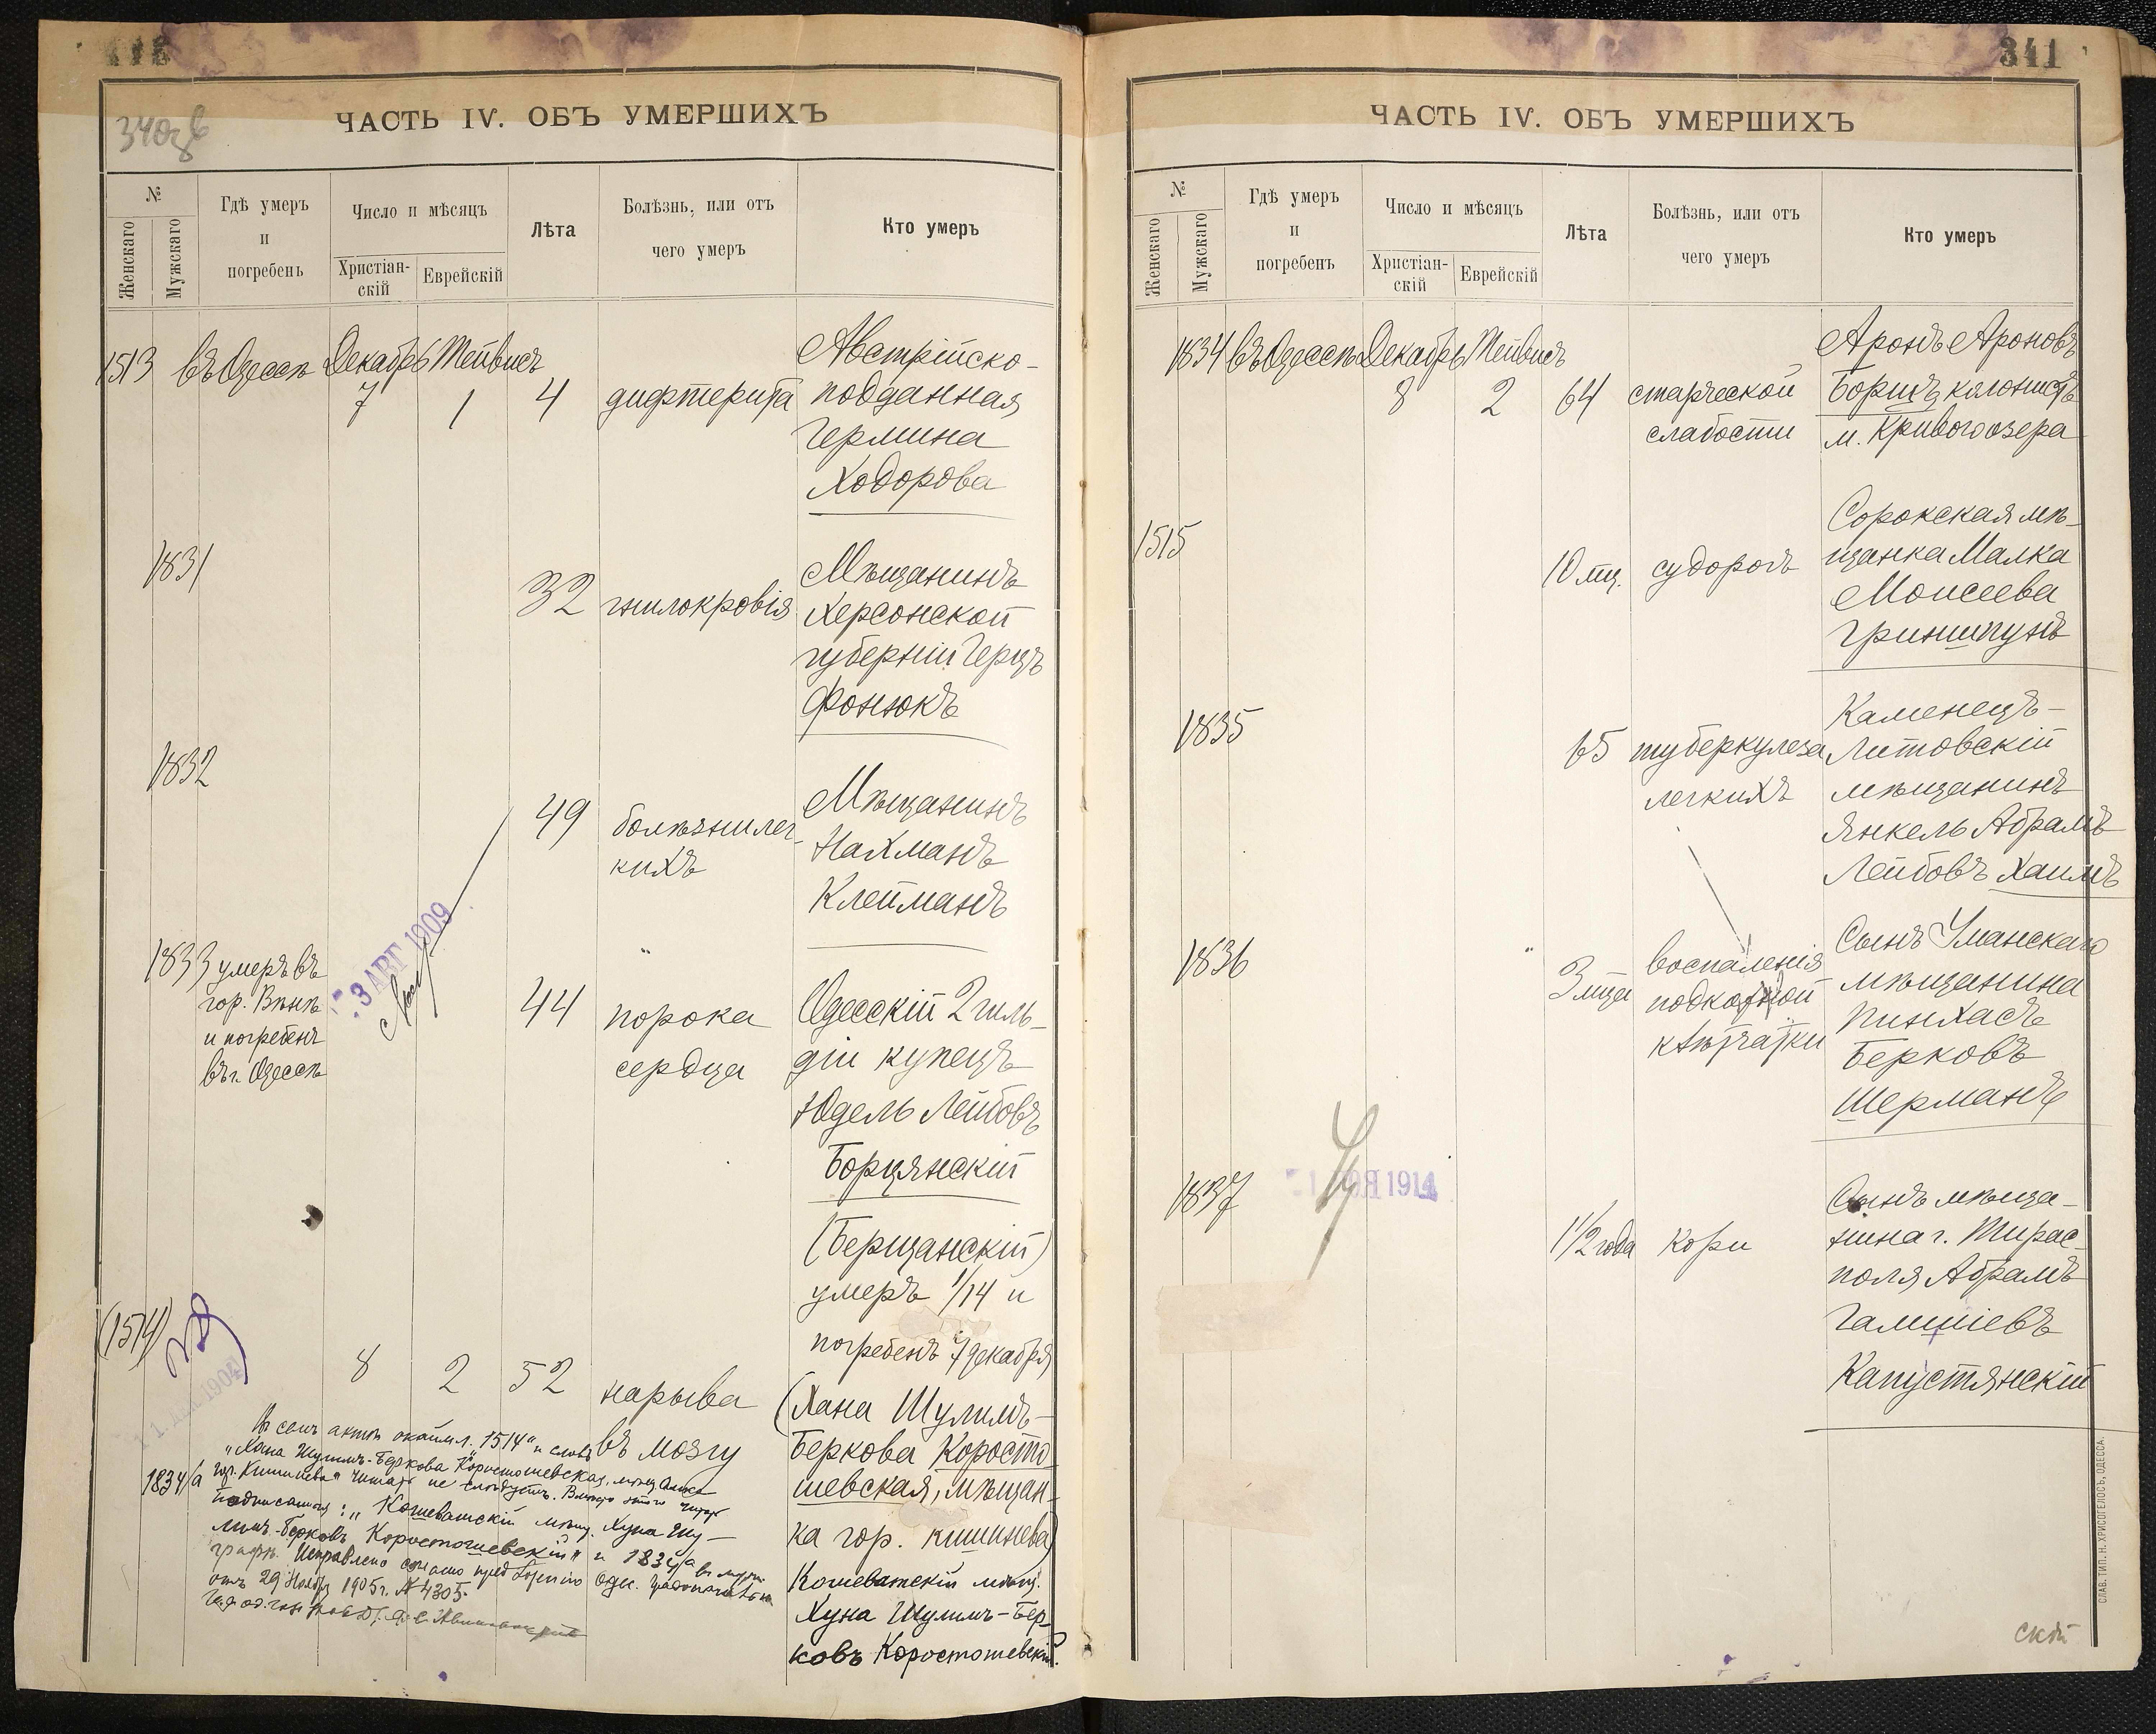 340об
ЧАСТЬ IV. ОБЪ УМЕРШИХЪ
№
Женскаго
Мужскаго
Гдѣ умеръ
и
погребенъ
Число и мѣсяцъ
Христіан-
скій
Еврейскій
Лѣта
Болѣзнь, или отъ
чего умеръ
Кто умеръ
1513 въ Одессѣ Декабрь Тейвисъ
7 1 4 дифтерита
Австрійско-
подданная
Гермина
Ходорова
1831
32 гнилокровія
Мѣщанинъ
Херсонской
губерніи Герцъ
Фонюкъ
1832
49 болѣзни лег-
кихъ
Мѣщанинъ
Нахманъ
Клейманъ
3 АВГ 1909
1833 умеръ въ
гор. Вѣнѣ
и погребенъ
въ г. Одессѣ
44 порока
сердца
Одесскій 2 гиль-
діи купецъ
Юдель Лейбовъ
Борцянскій
(Берщанскій)
умеръ 1/14 и
погребенъ 7 декабря
(1514)
8 2 52 нарыва
въ мозгу
(Хана Шулимъ-
Беркова Коросто-
шевская, мѣщан-
ка гор. Кишинева)
Кошеватскій мѣщ.
Хуна Шулимъ-Бер-
ковъ Коростошевскій.
1834/а
Въ семъ актѣ окаймл. "1514" и слова
"Хана Шулимъ-Беркова Коростошевская, мѣщанка
гор. Кишинева" читать не слѣдуетъ. Вмѣсто этого читать
подписанныя: "Кошеватскій мѣщ. Хуна Шу-
лимъ-Берковъ Коростошевскій" и 1834/а въ муж.
графѣ. Исправлено согласно предложенію Одес. Градоначальника
отъ 29 Ноября 1905 г. № 4305.
341
ЧАСТЬ IV. ОБЪ УМЕРШИХЪ
№
Женскаго
Мужскаго
Гдѣ умеръ
и
погребенъ
Число и мѣсяцъ
Христіан-
скій
Еврейскій
Лѣта
Болѣзнь, или отъ
чего умеръ
Кто умеръ
1834 въ Одессѣ Декабрь Тейвисъ
8 2 64 старческой
слабости
Аронъ Ароновъ
Борицъ колонистъ
м. Кривого озера
1515
10 мц. судорогъ
Сорокская мѣ-
щанка Малка
Моисеева
Гриншпунъ
1835
65 туберкулеза
легкихъ
Каменецъ-
Литовскій
мѣщанинъ
Янкель Абрамъ
Лейбовъ Хаимъ
1836
3 мца воспаленія
подкожной
клѣтчатки
Сынъ Уманскаго
мѣщанина
Пинхасъ
Берковъ
Шерманъ
1914
1837
1 1/2 года кори
Сынъ мѣща-
нина г. Тирас-
поля Абрамъ
Галишіевъ
Капустянскій
ской
СЛАВ. ТИП. Н. ХРИСОГЕЛОСЪ, ОДЕССА.